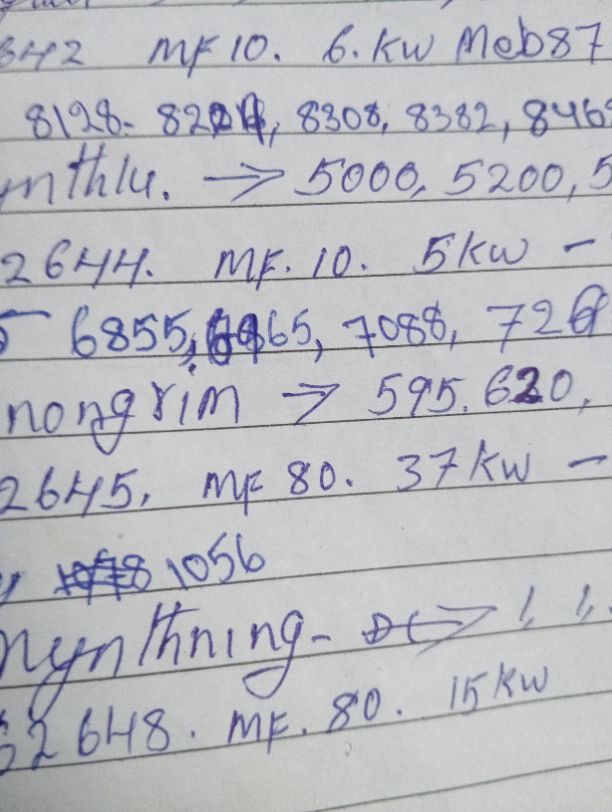 642 MF 10. 6. KW Meb87
8128- 8204, 8308, 8382, 846
nthly. → 5000, 5200, 5
2644. MF. 10. 5 KW -
5 6855, 6965, 7088, 726
nongrim → 595. 620,
2645, MF 80. 37 KW -
1056
nynthning - → 1, 1.
2648. MF. 80. 15 KW